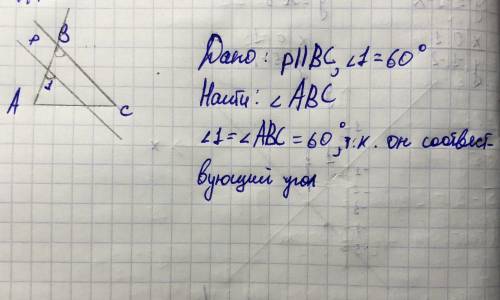 p
B
1
A
C
Дано: p||BC, ∠1=60°
Найти: ∠ABC
∠1=∠ABC=60°, т.к. он соответст-
вующий угол